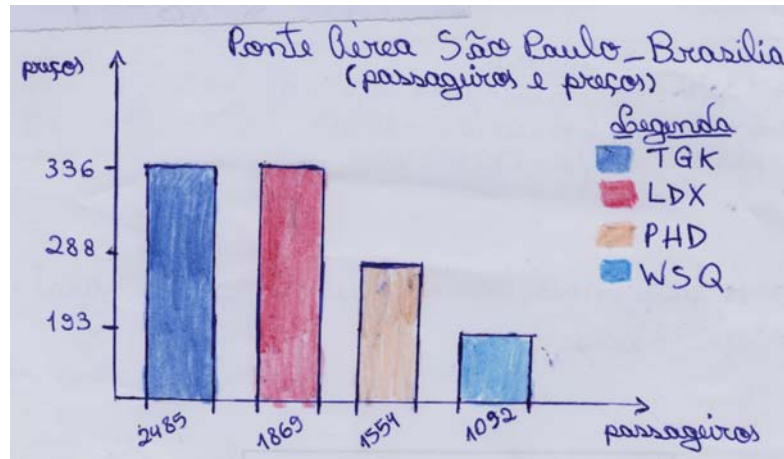 Ponte Aérea São Paulo - Brasília
(passageiros e preços)
preços
Legenda
TGK
LDX
PHD
WSQ
336
288
193
2485
1869
1554
1092
passageiros